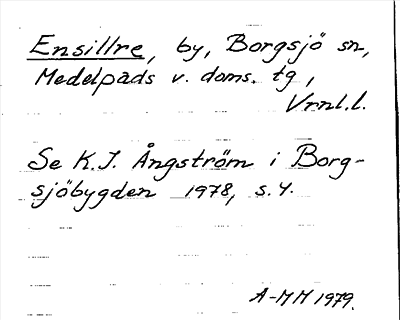 Ensillre, by, Borgsjö sn,
Medelpads v. doms. tg,
Vrnl.l.
Se K.J. Ångström i Borg-
sjöbygden 1978, s. 4.
A-MM 1979.